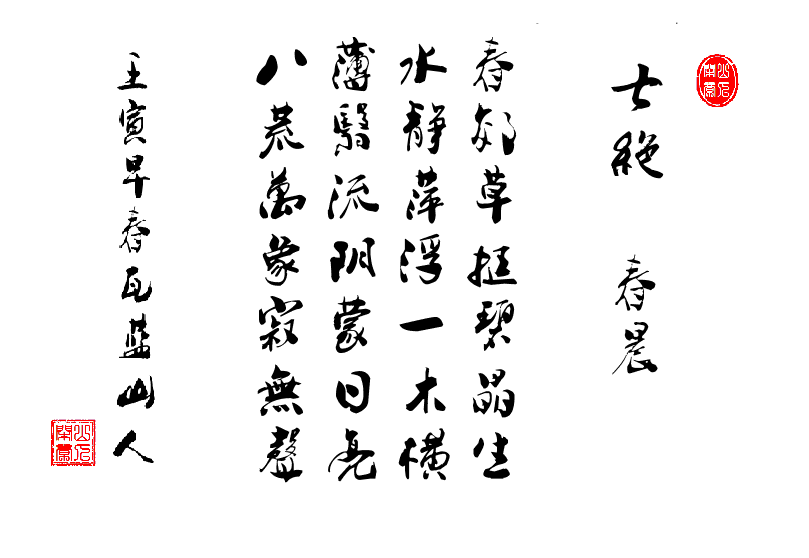 七絶 春晨
春郊草挺碧晶生
水靜萍浮一木橫
薄翳流阴蒙日亮
八荒萬象寂無聲
壬寅早春瓦蓝山人